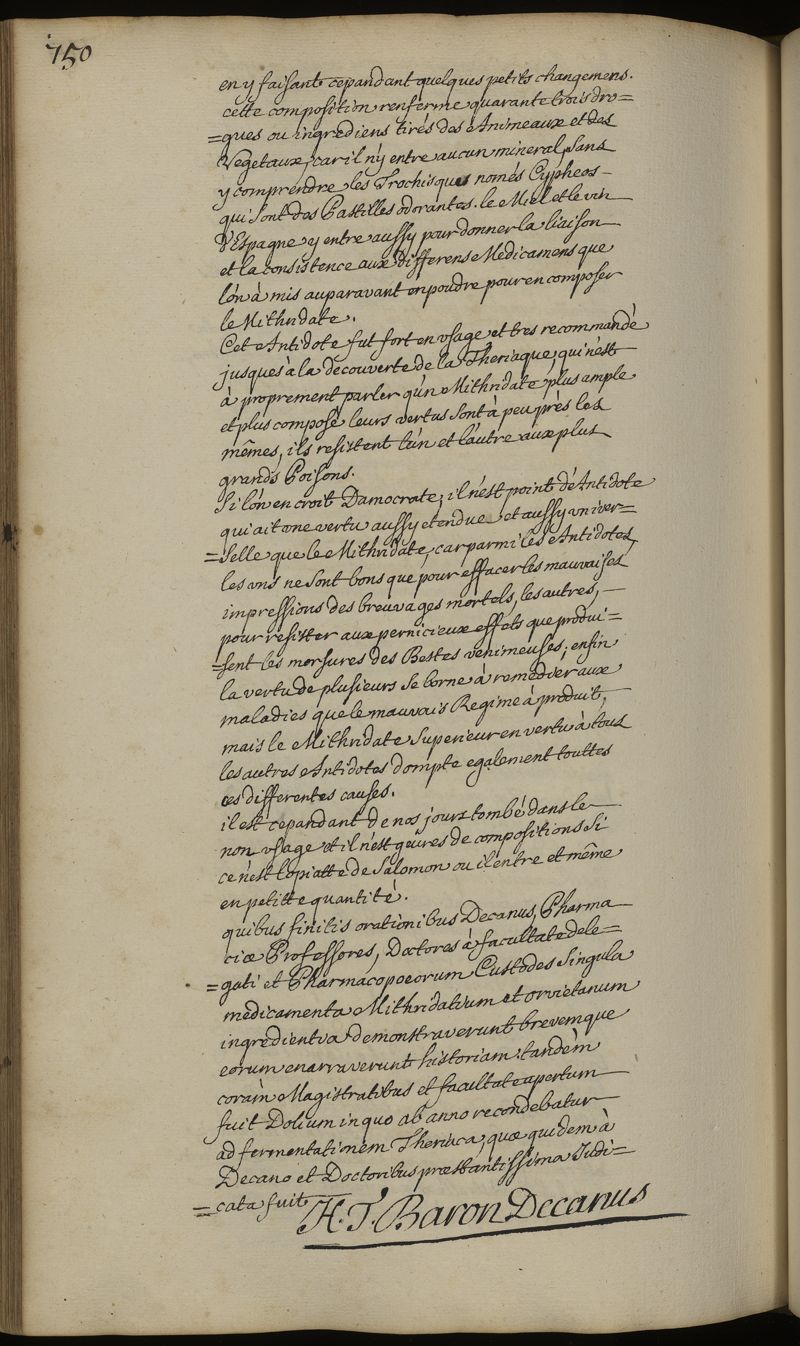 750
en y faisant cependant quelques petits changemens.
cette composition renferme quarante trois dro=
=gues ou ingrediens tirés des Animeaux et des
Vegetaux, car il n'y entre aucun mineral, sans
y comprendre les Trochisques només Cypheos
qui sont des Pastilles odorantes. le Miel et le vin
d'Espagne y entre aussy pour donner la liaison
et la consistence aux differens Medicamens que
l'on à mis auparavant en poudre pour en composer
le Mithridate.
Cet Antidote fut fort en usage et tres recommandé
jusques à la découverte de la Theriaque, qui n'est
à proprement parler qu'un Mithridate plus ample
et plus composé leurs vertus sont à peu près les
mêmes, ils resistent l'un et l'autre aux plus
grands Poisons.
Si l'on en croit Damocrate, il n'est point d'Antidote
qui ait une vertu aussy etendue et aussy univer=
=selle que le Mithridate, car parmi les Antidotes,
les uns ne sont bons que pour effacer les mauvaises
impressions des breuvages mortels, les autres,
pour resister aux pernicieux effets que produi=
=sent les morsures des Bestes venimeuses, enfin
la vertu de plusieurs se borne à remedier aux
maladies que le mauvais Regime à produit,
mais le Mithridate Superieur en vertu à tous
les autres Antidotes dompte egalement touttes
ces differentes causes.
il est cependant de nos jours tombé dans le
non usage et il n'est gueres de compositions Si
ce n'est l'opiatte de Salomon ou il entre et même
en petitte quantité.
quibus finitis orationibus Decanus, Pharma
ciæ Professores, Doctores à facultate dele=
=gati et Pharmacopoeorum Custodes Singula
medicamenta Mithridatium et orvietanum
ingredientia demonstraverunt brevemque
eorum enarraverunt historiam, tandem
coram Magistratibus et facultate apertum
fuit Dolium in quo ab anno recondebatur
ad fermentationem Theriaca, quæ quidem à
Decano et Doctoribus præstantissima Judi=
=cata fuit
H. T. Baron Decanus